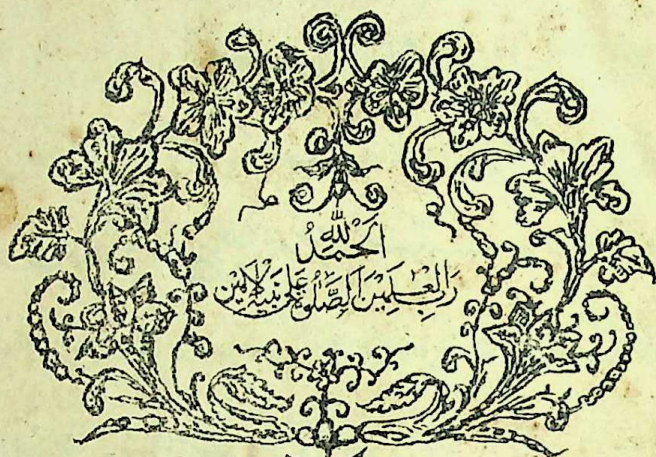 اَلْحَمْدُ لِلّٰهِ
رَبِّ الْعٰلَمِيْنَ اَلصَّلٰوةُ عَلٰى نَبِيِّهِ الْاَمِيْن